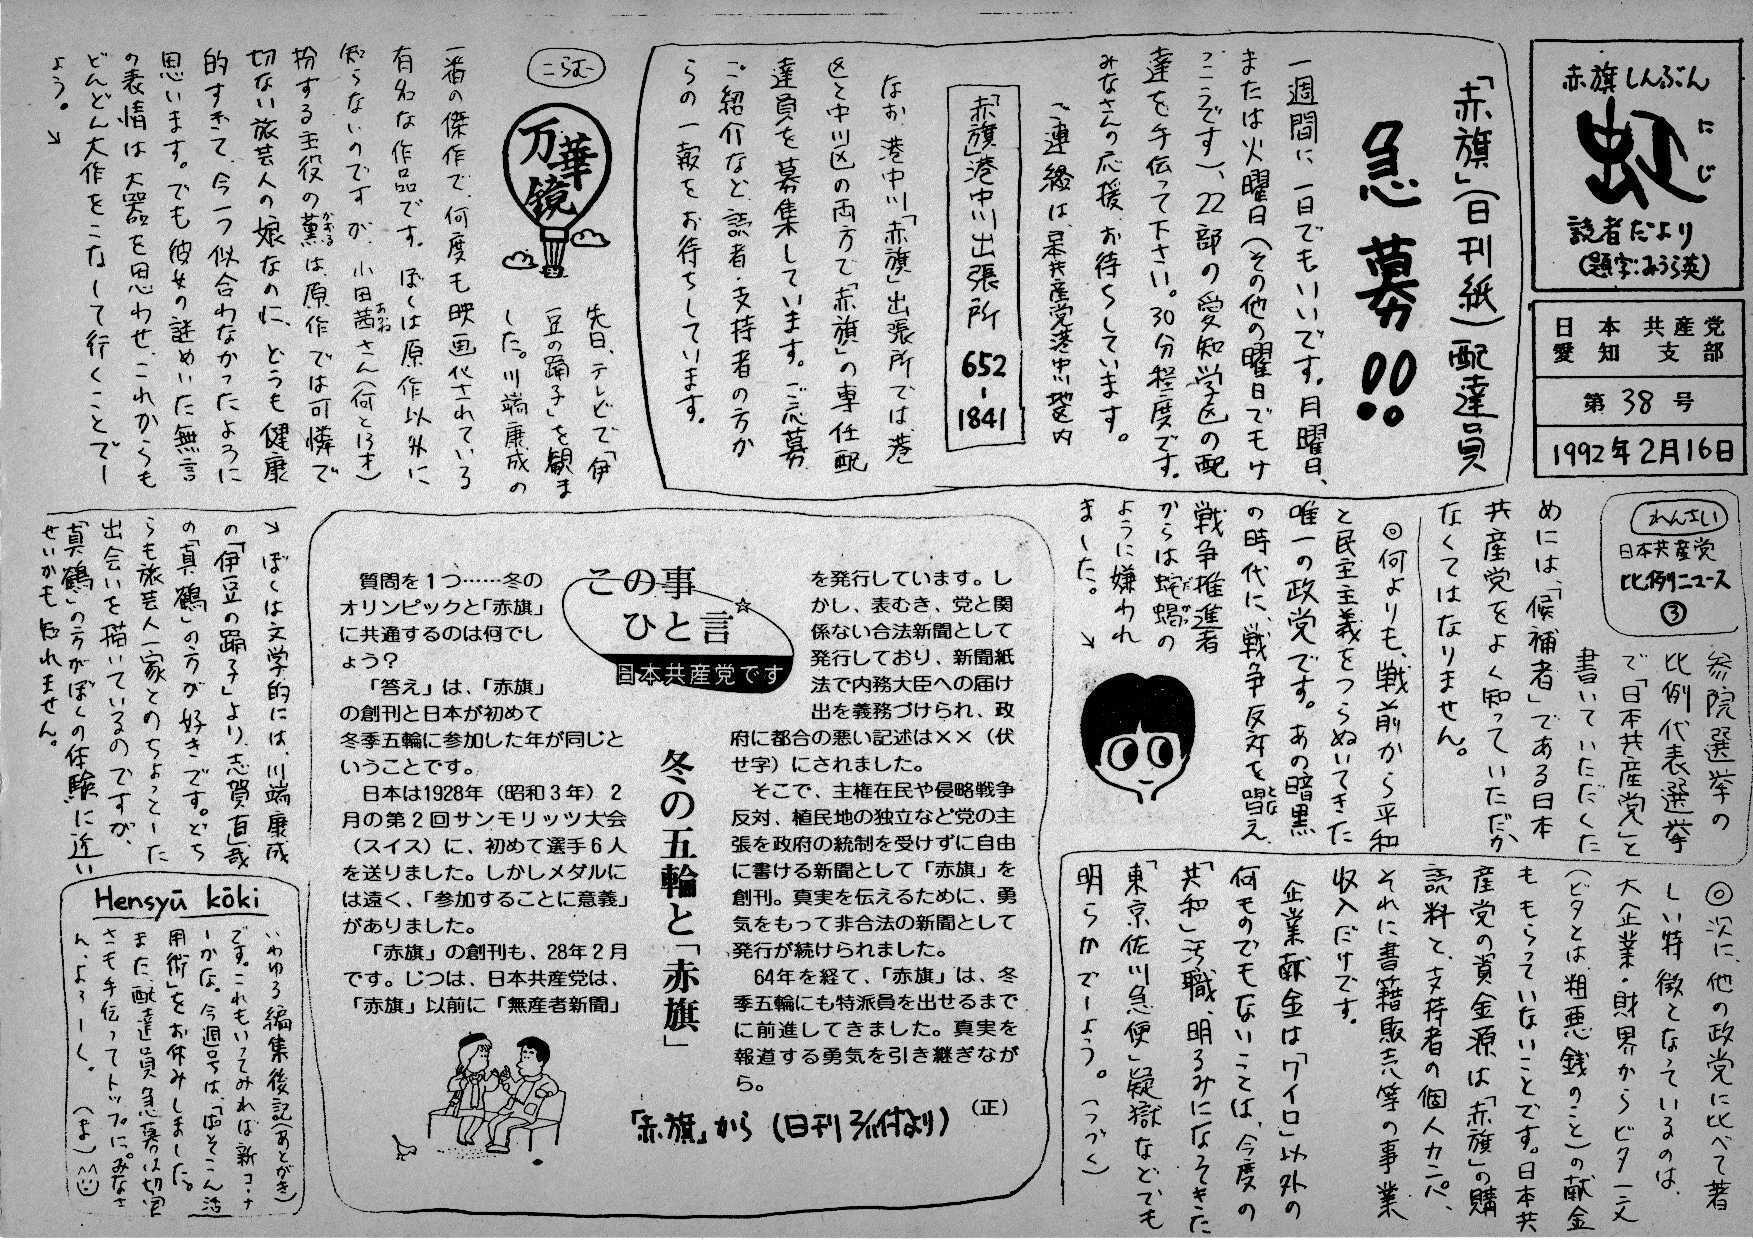 赤旗しんぶん
虹
にじ
読者だより
(題字:みうら英)
日本共産党
愛知支部
第38号
1992年2月16日
「赤旗」(日刊紙)配達員
急募!!
一週間に一日でもいいです。月曜日、
または火曜日(その他の曜日でもけ
っこうです)、22部の愛知学区の配
達を手伝って下さい。30分程度です。
みなさんの応援、お待ちしています。
ご連絡は、日本共産党港中川地区内
「赤旗」港中川出張所 652-1841
なお、港中川「赤旗」出張所では、港
区と中川区の両方で「赤旗」の専任配
達員を募集しています。ご応募
ご紹介など、読者・支持者の方か
らの一報をお待ちしています。
こらむ
万華鏡
先日、テレビで「伊
豆の踊子」を観ま
した。川端康成の
一番の傑作で、何度も映画化されている
有名な作品です。ぼくは原作以外に
知らないのですが、小田茜さん(何と13才)
あかね
扮する主役の薫は、原作では可憐で
かおる
切ない旅芸人の娘なのに、どうも健康
的すぎて、今一つ似合わなかったように
思います。でも彼女の謎めいた無言
の表情は大器を思わせ、これからも
どんどん大作をこなして行くことでし
ょう。↘
↘ぼくは文学的には、川端康成
の「伊豆の踊子」より、志賀直哉
の「真鶴」の方が好きです。どち
らも旅芸人一家とのちょっとした
出会いを描いているのですが、
「真鶴」の方がぼくの体験に近い
せいかも知れません。
れんさい
日本共産党
比例ニュース
③
参院選挙の
比例代表選挙
で「日本共産党」と
書いていただくた
めには、「候補者」である日本
共産党をよく知っていただか
なくてはなりません。
◎何よりも、戦前から平和
と民主主義をつらぬいてきた
唯一の政党です。あの暗黒
の時代に、戦争反対を唱え、
とな
戦争推進者
からは蛇蝎の
だかつ
ように嫌われ
ました。↘
◎次に、他の政党に比べて著
しい特徴となっているのは、
大企業・財界からビタ一文
(ビタとは粗悪銭のこと)の献金
ももらっていないことです。日本共
産党の資金源は「赤旗」の購
読料と、支持者の個人カンパ、
それに書籍販売等の事業
収入だけです。
企業献金は「ワイロ」以外の
何ものでもないことは、今度の
「共和」汚職、明るみになってきた
「東京佐川急便」疑獄などでも
明らかでしょう。(つづく)
この事
ひと言☆
日本共産党です
冬の五輪と「赤旗」
質問を1つ……冬の
オリンピックと「赤旗」
に共通するのは何でし
ょう?
「答え」は、「赤旗」
の創刊と日本が初めて
冬季五輪に参加した年が同じと
いうことです。
日本は1928年(昭和3年)2
月の第2回サンモリッツ大会
(スイス)に、初めて選手6人
を送りました。しかしメダルに
は遠く、「参加することに意義」
がありました。
「赤旗」の創刊も、28年2月
です。じつは、日本共産党は、
「赤旗」以前に「無産者新聞」
を発行しています。し
かし、表むき、党と関
係ない合法新聞として
発行しており、新聞紙
法で内務大臣への届け
出を義務づけられ、政
府に都合の悪い記述は××(伏
せ字)にされました。
そこで、主権在民や侵略戦争
反対、植民地の独立など党の主
張を政府の統制を受けずに自由
に書ける新聞として「赤旗」を
創刊。真実を伝えるために、勇
気をもって非合法の新聞として
発行が続けられました。
64年を経て、「赤旗」は、冬
季五輪にも特派員を出せるまで
に前進してきました。真実を
報道する勇気を引き継ぎなが
ら。
(正)
「赤旗」から(日刊 付より)
Hensyū kōki
いわゆる編集後記(あとがき)
です。これもいってみれば新コーナ
ーかな。今週号は、「ぱそこん活
用術」をお休みしました。
また、配達員急募は切実
さも手伝ってトップに。みなさ
ん、よろしく。(ま)